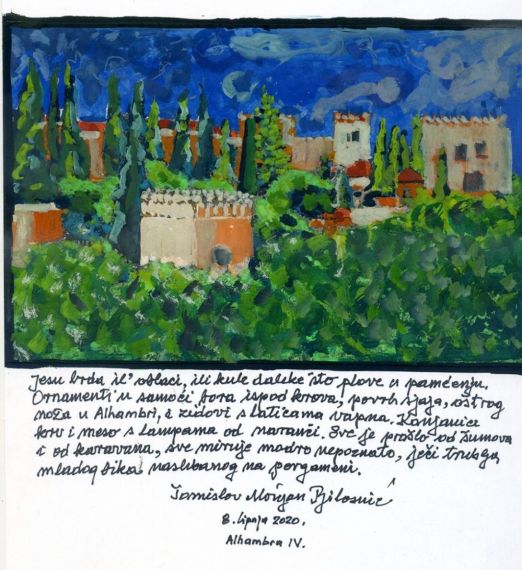 Jesu brda il' oblaci, ili kule daleke što plove u pamćenju.
Ornamenti u samoći bora ispod krova, povrh sjaja, oštrog
noža u Alhambri, a zidovi s laticama vapna. Konjanici
krv i meso s lampama od naranči. Sve je prošlo od šumova
i od karavana, sve miruje modro nepoznato, ječi trublja
mladog bika naslikanog na pergameni.
Tomislav Marijan Bilosnić
8. lipnja 2020.
Alhambra IV.